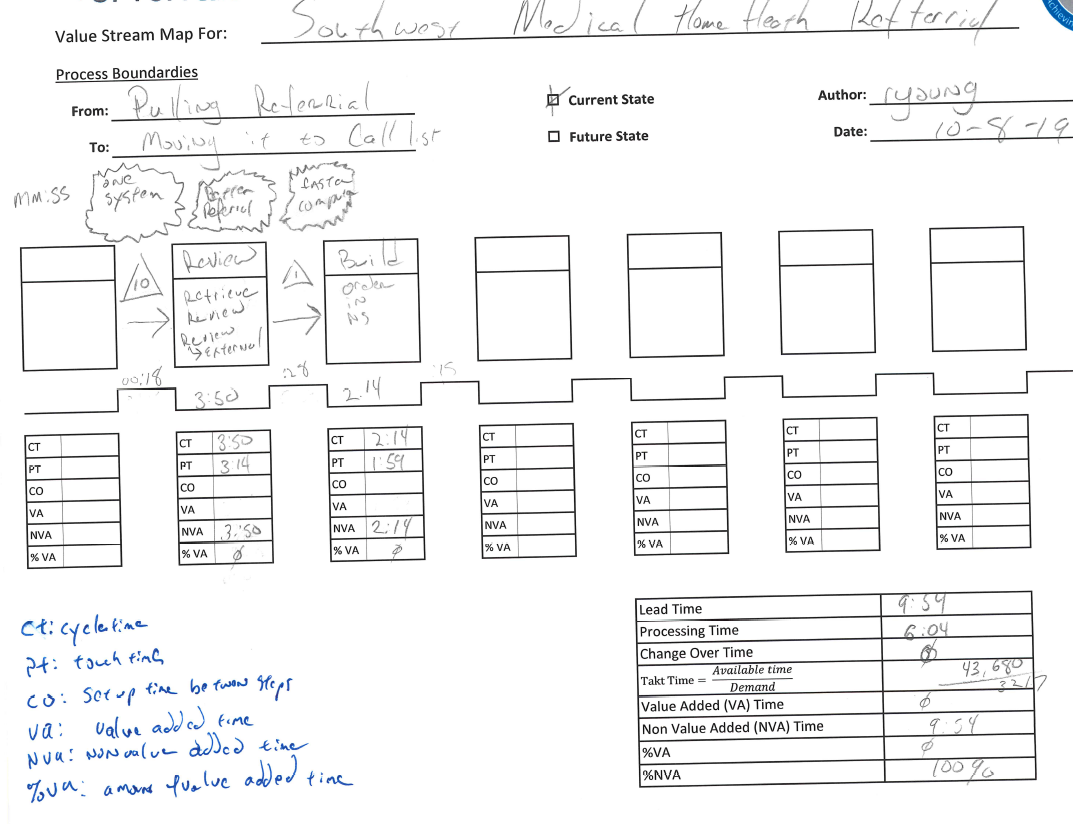 Value Stream Map For: Southwest Medical Home Heath Referrial
Process Boundardies
From: Pulling Referrial
To: Moving it to Call list
☑ Current State
☐ Future State
Author: ryoung
Date: 10-8-19
MM:SS
one
system
Better
Referrial
faster
10
Review
Retrieve
Review
Review
↳External
1
Build
order
in
NS
00:18
3:50
:28
2:14
:15
CT
PT
CO
VA
NVA
% VA
CT 3:50
PT 3:14
CO
VA
NVA 3:50
% VA ∅
CT 2:14
PT 1:59
CO
VA
NVA 2:14
% VA ∅
CT
PT
CO
VA
NVA
% VA
CT
PT
CO
VA
NVA
% VA
CT
PT
CO
VA
NVA
% VA
CT
PT
CO
VA
NVA
% VA
Ct: cycle time
Pt: touch time
CO: Set up time between steps
VA: Value added time
NVA: Non value added time
%VA: value added time
Lead Time 9:54
Processing Time 6:04
Change Over Time ∅
Takt Time = Available time / Demand 43,680 / 3217
Value Added (VA) Time ∅
Non Value Added (NVA) Time 9:54
%VA ∅
%NVA 100%